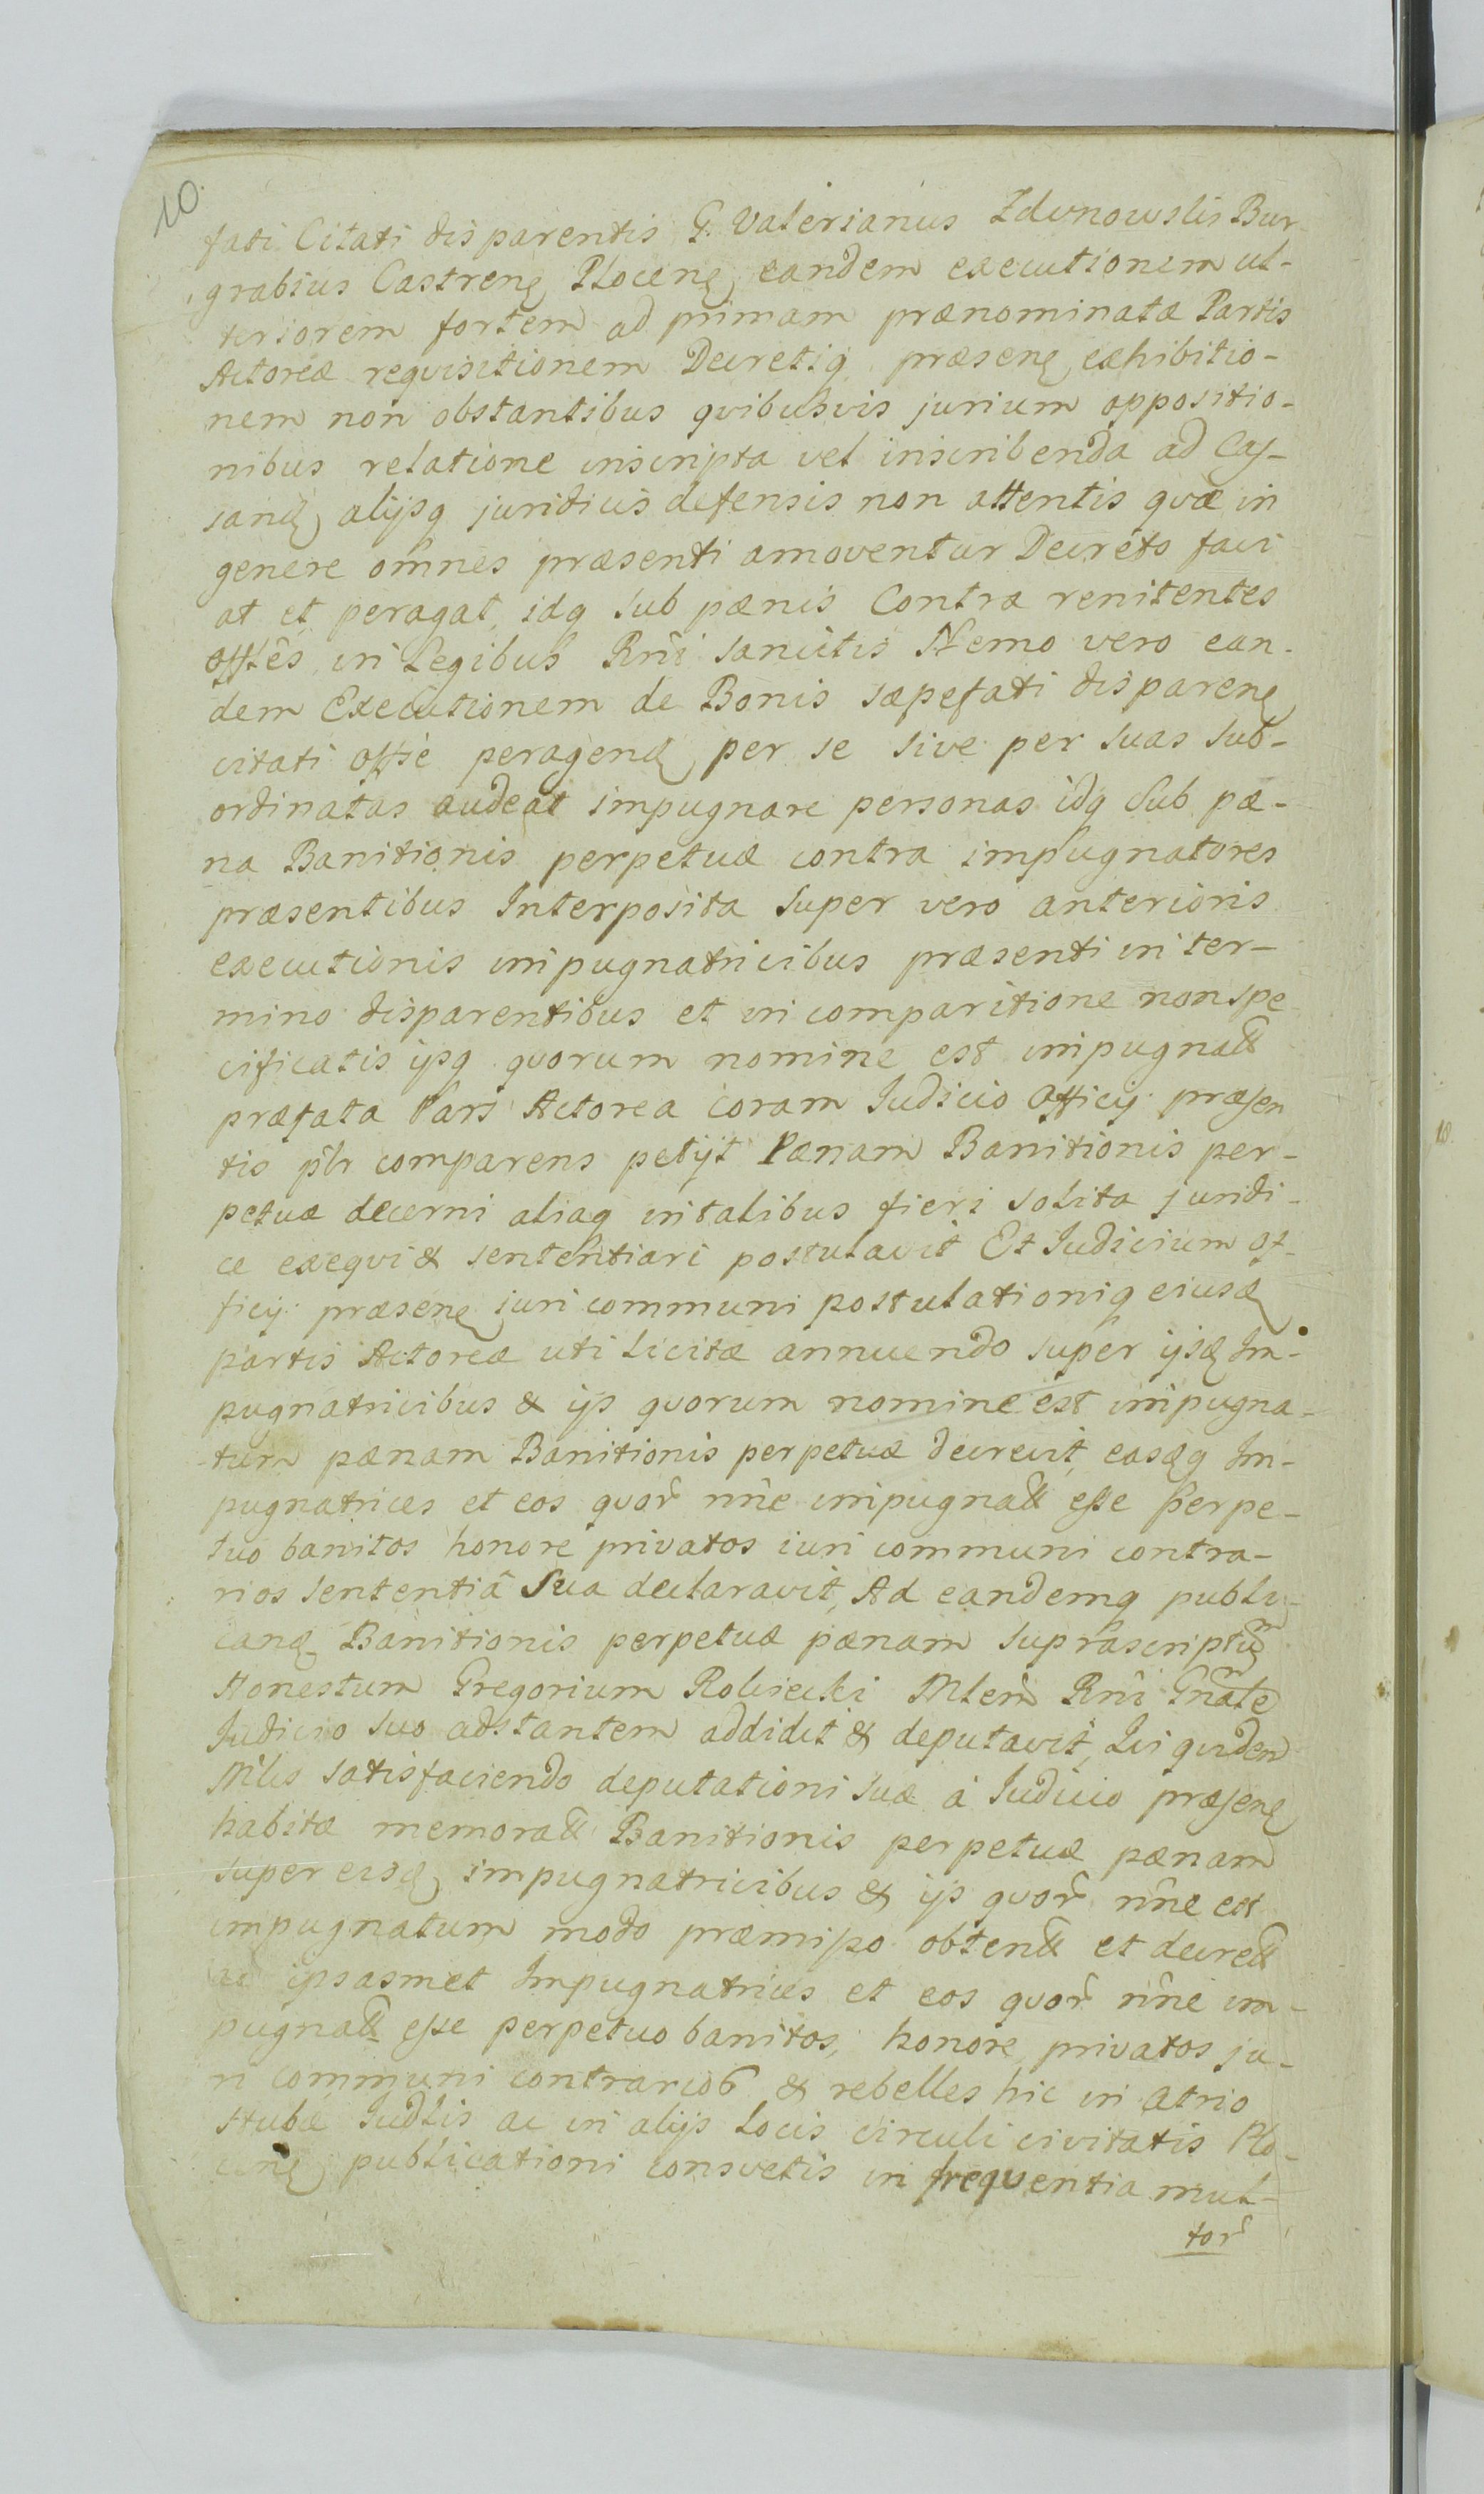 10.
fati Citati disparentis G. Valerianus Zdunowskis Bur
grabius Castrenę Plocenę eandem executionem ul-
teriorem fortem ad primam prænominatæ Partis
Actoreæ requisitionem Decretiq præsenę exhibitio-
nem non obstantibus quibusvis jurium oppositio-
nibus relatione inscripta vel inscribenda ad Cas-
sandę alijsq juridicis defensis non attentis quæ in
genere omnes præsenti amoventur Decreto faci
at et peragat, idq sub pænis Contra renitentes
offlês in Legibus Rni sancitis Nemo vero ean-
dem Executionem de Bonis sæpefati disparenę
citati offlè peragendę per se sive per suas sub-
ordinatas audeat impugnare personas idq Sub pæ-
na Banitionis perpetuæ contra impugnatores
præsentibus Interposita Super vero anterioris
executionis impugnatricibus præsenti in ter-
mino disparentibus et in comparitione non spe
cificatis ijsq quorum nomine est impugnatt
præfata Pars Actorea coram Judicio Officij præsen
tis plr comparens petijt Pænam Banitionis per-
petuæ decerni aliaq in talibus fieri solita juridi-
ce exequi & sententiari postulavit Et Judicium of-
ficij præsenę juri communi postulationiq eiusdę
partis Actoreæ uti licitæ annuendo super ijsdę Im-
pugnatricibus & ijs quorum nomine est impugna-
tum pænam Banitionis perpetuæ decrevit, easdęq Im-
pugnatrices et eos quor nne impugnatt esse perpe-
tuo banitos honore privatos iuri communi contra-
rios sententiâ Sua declaravit, Ad eandemq publi-
candę Banitionis perpetuæ pænam suprascriptum
Honestum Gregorium Robiecki Mlem Rni Gnalem
Judicio suo adstantem addidit & deputavit, Qui quidem
Mlis satisfaciendo deputationi suæ à Judicio præsenę
habitæ memoratt Banitionis perpetuæ pænam
super eisdę impugnatricibus & ijs quor nne est
impugnatum modo præmisso obtentt et decrett
ac ipsasmet Impugnatrices et eos quor nne im-
pugnatt esse perpetuo banitos, honore privatos ju-
ri communi contrarios & rebelles hic in atrio
stubæ Judlis ac in alijs Locis circuli civitatis Plo-
cenę publicationi consvetis in frequentia mul-
tor